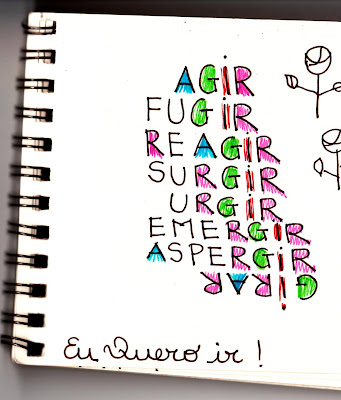 AGIR
FUGIR
REAGIR
SURGIR
URGIR
EMERGIR
ASPERGIR
GIRAR
Eu Quero ir!